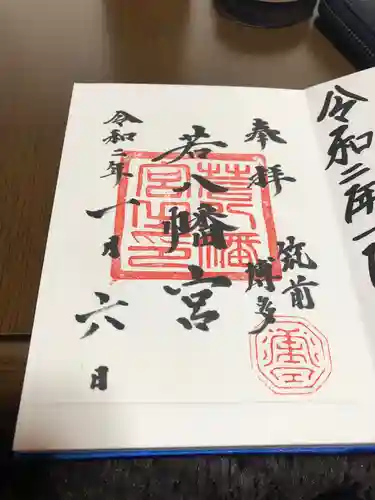 奉拝
筑前
博多
若八幡宮
令和二年
一月
六日
令和二年一